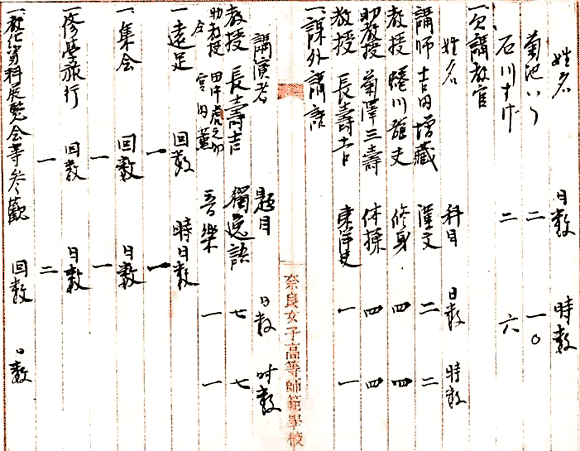 姓名 日数 時数
菊池いく 二 一〇
石川すげ 二 六
一、欠講教官
姓名 科目 日数 時数
講師 吉田増藏 漢文 二 二
教授 蜷川龍夫 修身 四 四
助教授 菊澤三壽 体操 四 四
教授 長壽吉 東洋史 一 一
一、課外講話
奈良女子高等師範學校
講演者 題目 日数 時数
教授 長壽吉 獨逸語 七 七
助教授 音樂 一 一
一、遠足 回数 一 時日数 一
一、集会 回数 一 日数 一
一、修學旅行 回数 一 日数 二
展覧会等参観 回数 日数